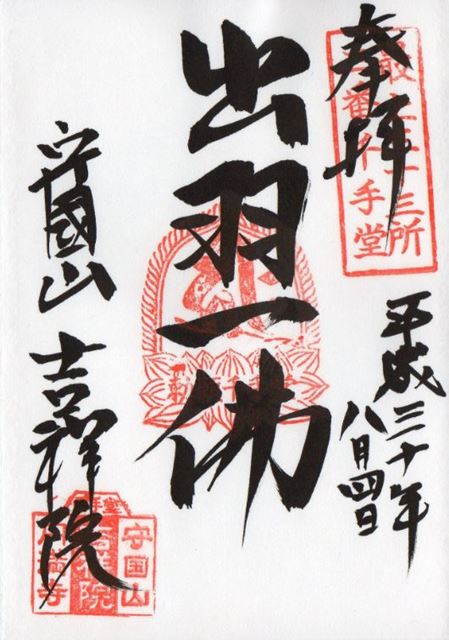 奉拝
最上三十三所
三番千手堂
平成三十年
八月四日
出羽一佛
守國山 吉祥院
守国山
吉祥院